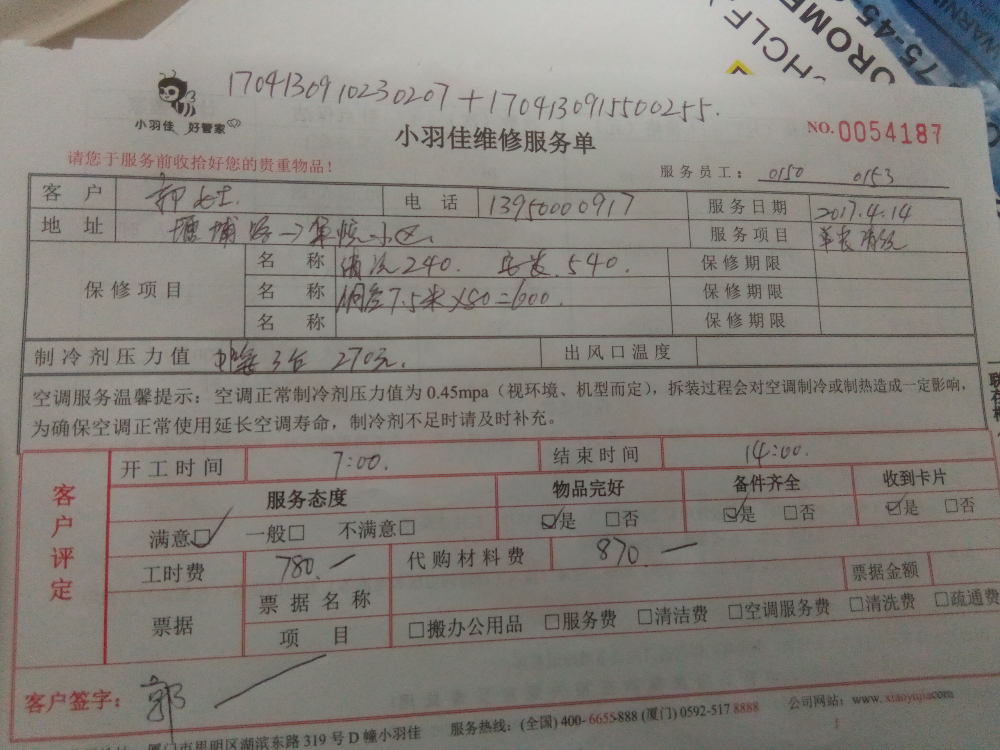 HCLF
UROME
75-45-
WARNI
1704130910230207+1704130915500255.
小羽佳 好管家
小羽佳维修服务单
NO.0054187
请您于服务前收拾好您的贵重物品!
服务员工: 0150 0153
客户 郭女士. 电话 13950000917 服务日期 2017.4.14
地址 塘埔路→ 小区 服务项目
保修项目 名称 清洗240. 安装.540. 保修期限
名称 铜管7.5米×80=600. 保修期限
名称 保修期限
制冷剂压力值 3台 270元. 出风口温度
空调服务温馨提示:空调正常制冷剂压力值为 0.45mpa(视环境、机型而定),拆装过程会对空调制冷或制热造成一定影响,
为确保空调正常使用延长空调寿命,制冷剂不足时请及时补充。
客户评定
开工时间 7:00. 结束时间 14:00.
服务态度 物品完好 备件齐全 收到卡片
满意☑ 一般□ 不满意□ ☑是 □否 ☑是 □否 ☑是 □否
工时费 780.— 代购材料费 870.—
票据 票据名称 票据金额
项目 □搬办公用品 □服务费 □清洁费 □空调服务费 □清洗费 □疏通费
客户签字: 郭
厦门市思明区湖滨东路 319 号 D 幢小羽佳 服务热线:(全国) 400-6655-888 (厦门) 0592-517 8888 公司网站:www.xiaoyujia.com